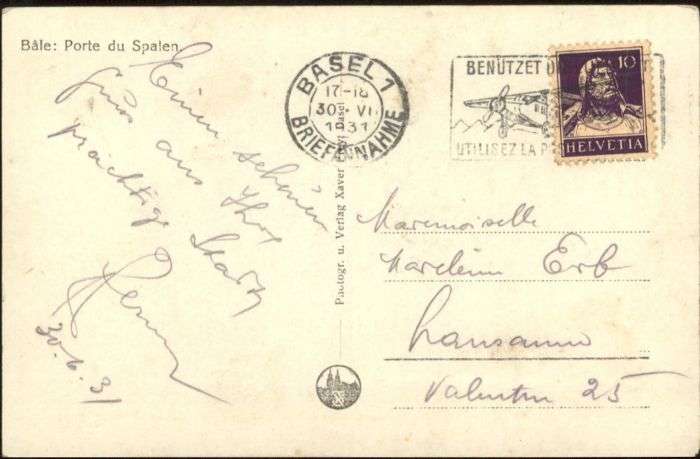 Bâle: Porte du Spalen.
Einen schönen
Gruss aus Ihre
prächtige Stadt
30.6.31
BASEL 1
17-18
30. VI
1931
BRIEFANNAHME
BENÜTZET D
UTILISEZ LA P
10
HELVETIA
Photogr. u. Verlag Xaver Basel
Mademoiselle
Erb
Lausanne
Valentin 25